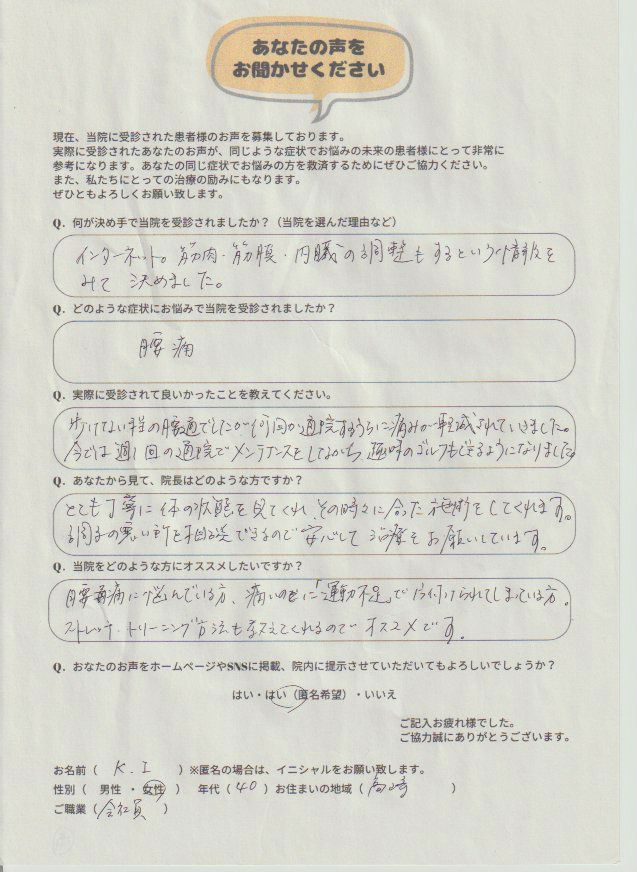 あなたの声を
お聞かせください
現在、当院に受診された患者様のお声を募集しております。
実際に受診されたあなたのお声が、同じような症状でお悩みの未来の患者様にとって非常に
参考になります。あなたの同じ症状でお悩みの方を救済するためにぜひご協力ください。
また、私たちにとっての治療の励みにもなります。
ぜひともよろしくお願い致します。
Q．何が決め手で当院を受診されましたか？（当院を選んだ理由など）
インターネット。筋肉・筋膜・内臓の調整もするという情報を
みて 決めました。
Q．どのような症状にお悩みで当院を受診されましたか？
腰痛
Q．実際に受診されて良いかったことを教えてください。
歩けない程の腰痛でしたが何回か通院するうちに痛みが軽減されていきました。
今では週1回の通院でメンテナンスをしながら、趣味のゴルフもできるようになりました。
Q．あなたから見て、院長はどのような方ですか？
とても丁寧に体の状態を見てくれ その時々に合った施術をしてくれます。
調子の悪い所を相談できるので安心して 治療をお願いしています。
Q．当院をどのような方にオススメしたいですか？
腰痛に悩んでいる方、痛いのに「運動不足」で片付けられてしまっている方。
ストレッチ・トレーニング方法も教えてくれるのでオススメです。
Q．おなたのお声をホームページやSNSに掲載、院内に提示させていただいてもよろしいでしょうか？
はい・はい（匿名希望）・いいえ
ご記入お疲れ様でした。
ご協力誠にありがとうございます。
お名前（ K.I ）※匿名の場合は、イニシャルをお願い致します。
性別（ 男性 ・ 女性 ） 年代（ 40 ）お住まいの地域（ 高崎 ）
ご職業（ 会社員 ）